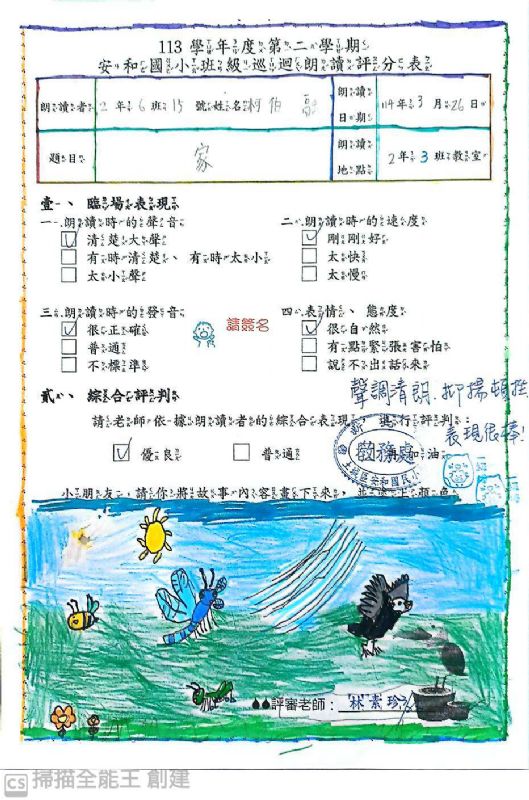 113 學年度第二學期
安和國小班級巡迴朗讀評分表
朗讀者 2年6班15號姓名柯怕 朗讀日期 114年3月26日
題目 家 朗讀地點 2年3班教室
壹、臨場表現
一、朗讀時的聲音 二、朗讀時的速度
清楚大聲 剛剛好
有時清楚、有時太小 太快
太小聲 太慢
三、朗讀時的發音 四、表情、態度
很正確 請簽名 很自然
普通 有點緊張害怕
不標準 說不出話來
聲調清朗.抑揚頓挫
貳、綜合評判
請老師依據朗讀者的綜合表現,進行評判:
表現很棒!
優良 普通 再加油
教務處
小朋友,請你將故事內容畫下來,並塗上顏色
評審老師: 林素珍
CS 掃描全能王 創建